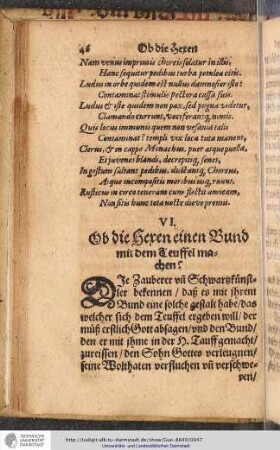 46 Ob die Hexen
Nam venus in primis choreis solatur in illis,
Hanc sequitur pedibus turba petulca citis.
Ludus in orbe quidem est nudus damnosior isto?
Contaminat stimulis pectora casta suis.
Ludus & iste quidem non pax, sed pugna videtur,
Clamando currunt, vociferanq, nimis.
Quis locus immunis quem non vesania talis
Contaminat? templi vix loca tuta manent,
Clerus, & in cappa Monachus, puer atque puella,
Et juvenes blandi, decrepitiq, senes,
In gestum saltant pedibus, ducuntq, Choreas,
Atque incompositis moribus usq, ruunt.
Rusticus in circo teneram cum flectit amicam,
Non sitis hunc tota nocte dieve premit.
VI.
Ob die Hexen einen Bund
mit dem Teuffel ma-
chen?
DJe Zauberer vñ Schwartzkünst-
ler bekennen / daß es mit ihrem
Bund eine solche gestalt habe / das
welcher sich dem Teuffel ergeben will / der
müß erstlich Gott absagen / vnd den Bund /
den er mit ihme in der H. Tauff gemacht /
zureissen / den Sohn Gottes verleugnen /
seine Wolthaten verfluchen vñ verschwe-
ren /
http://tudigit.ulb.tu-darmstadt.de/show/Gue-4849/0047
Universitäts- und Landesbibliothek Darmstadt